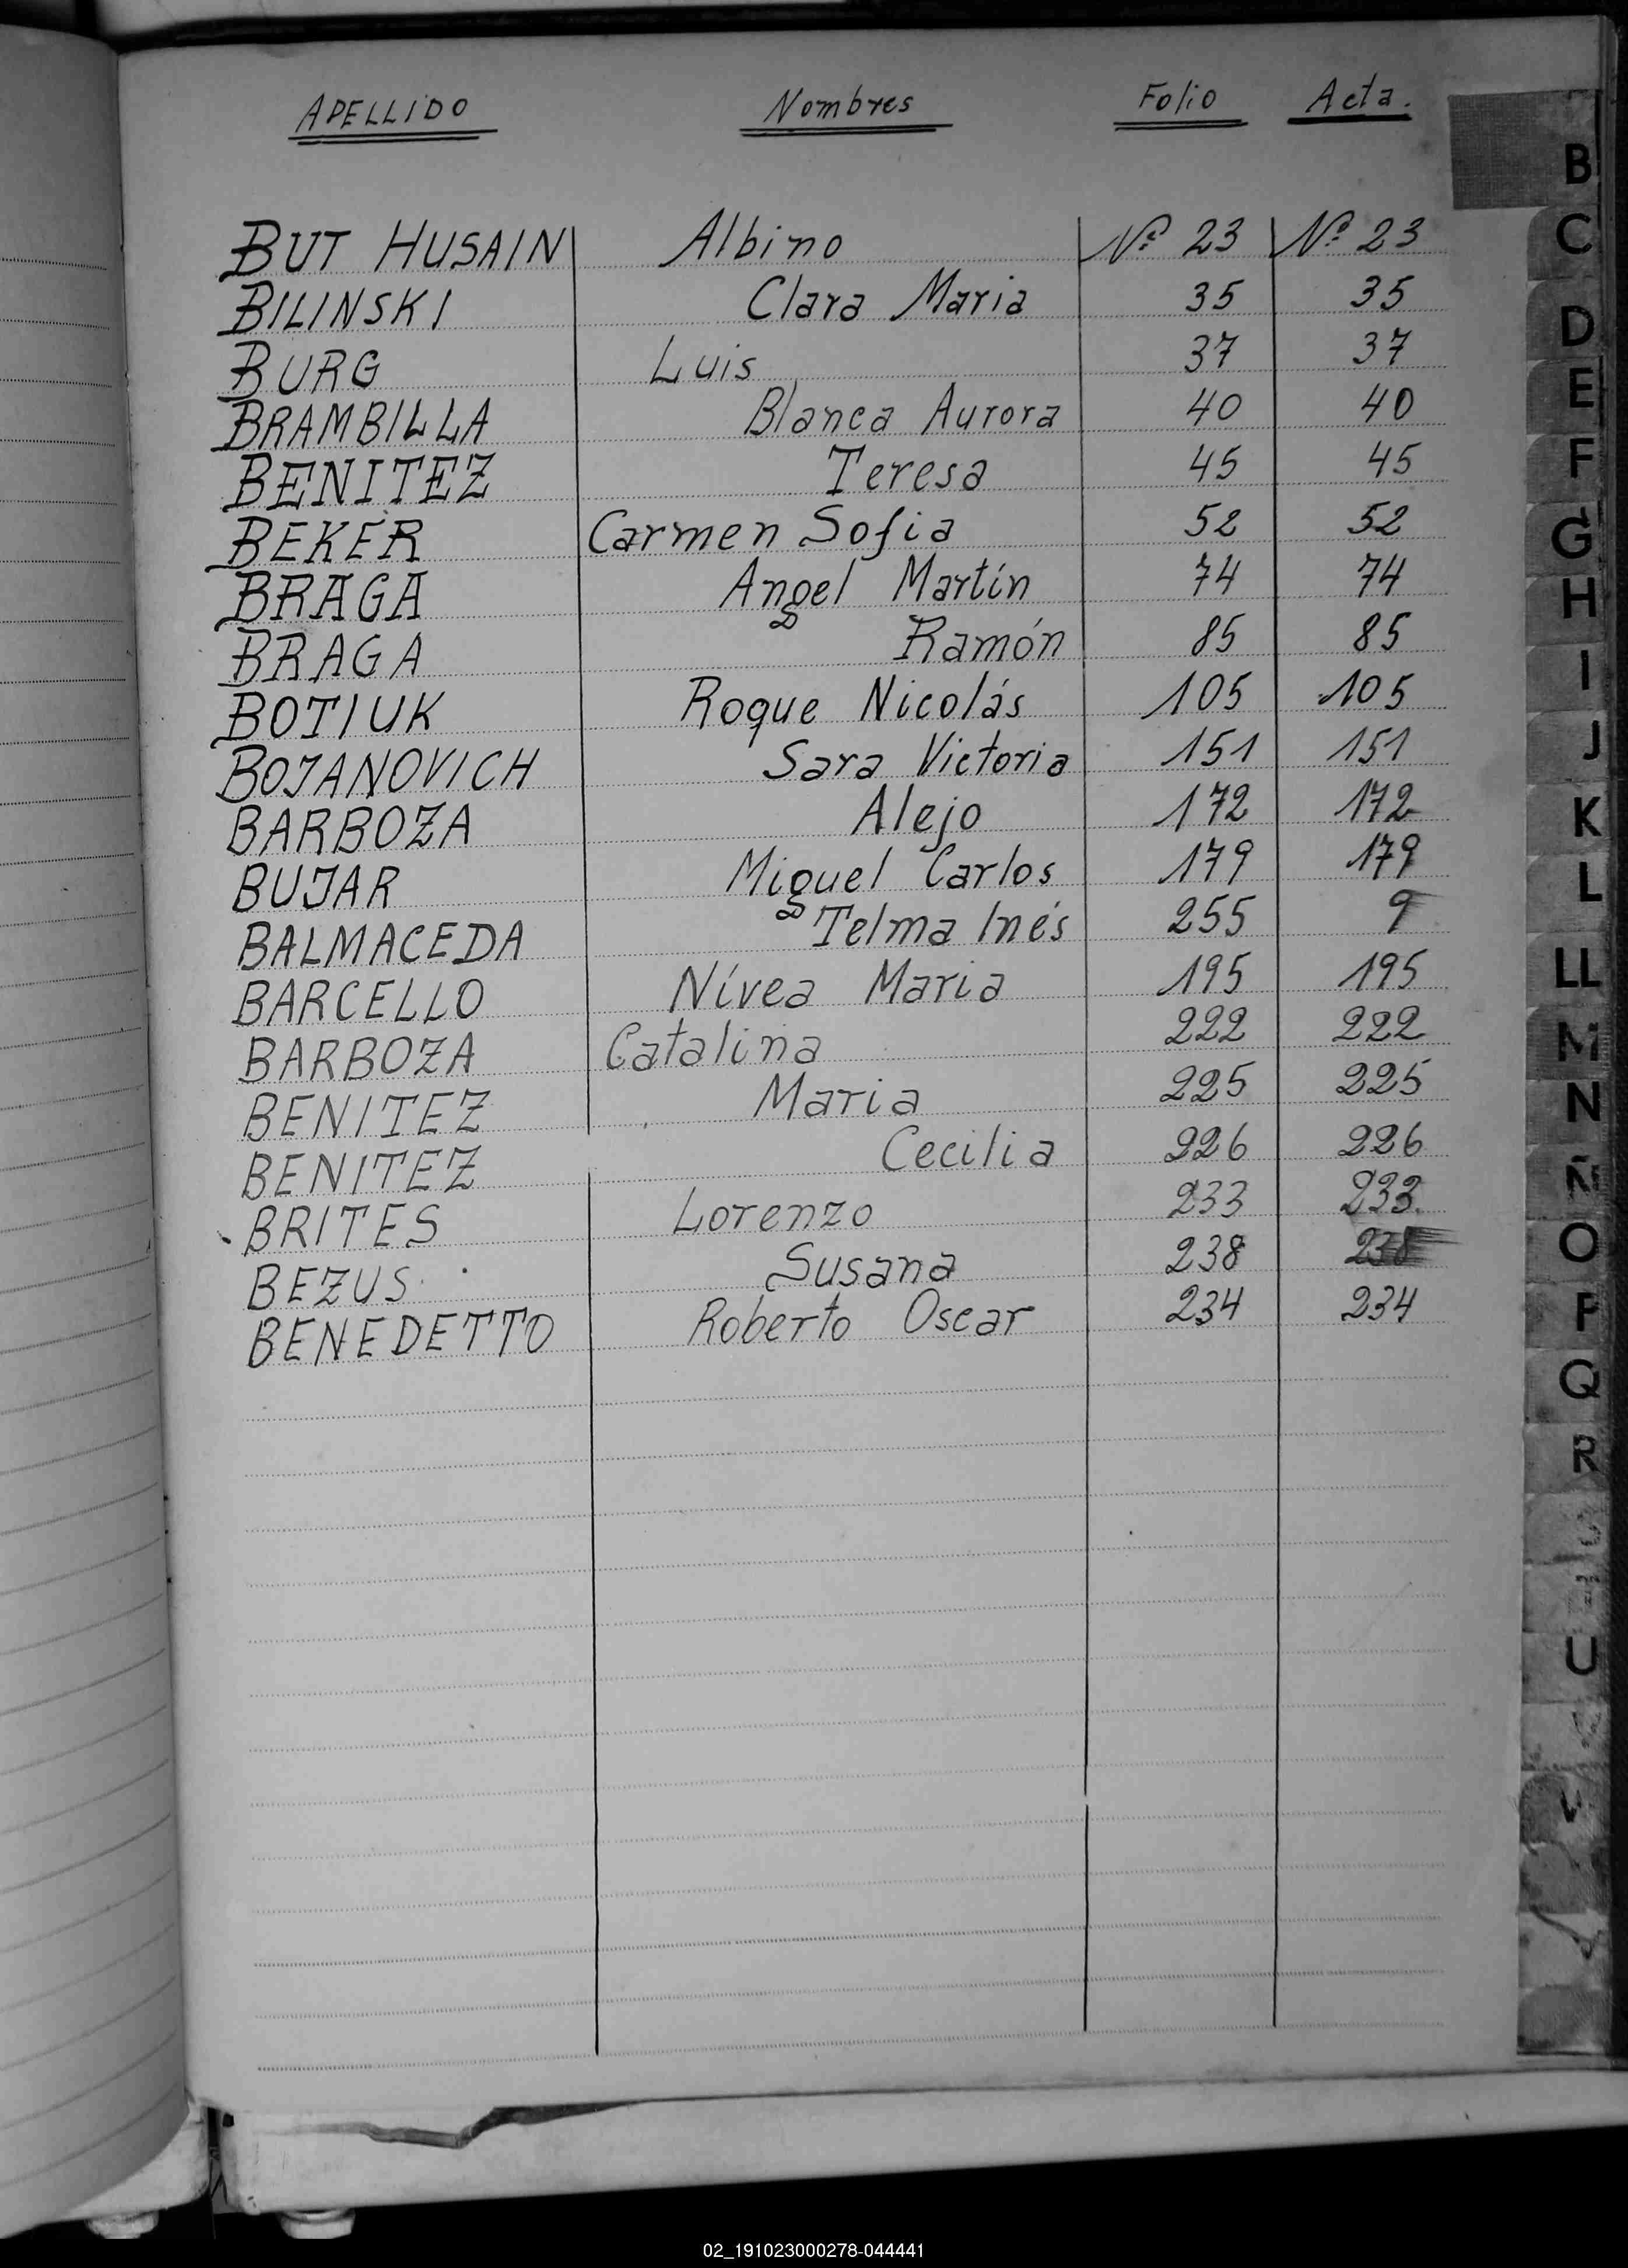 APELLIDO Nombres Folio Acta.
BUT HUSAIN Albino Nº 23 Nº 23
BILINSKI Clara Maria 35 35
BURG Luis 37 37
BRAMBILLA Blanca Aurora 40 40
BENITEZ Teresa 45 45
BEKER Carmen Sofia 52 52
BRAGA Angel Martín 74 74
BRAGA Ramón 85 85
BOTIUK Roque Nicolás 105 105
BOJANOVICH Sara Victoria 151 151
BARBOZA Alejo 172 172
BUJAR Miguel Carlos 179 179
BALMACEDA Telma Inés 255 9
BARCELLO Nívea Maria 195 195
BARBOZA Catalina 222 222
BENITEZ Maria 225 225
BENITEZ Cecilia 226 226
BRITES Lorenzo 233 233
BEZUS Susana 238 238
BENEDETTO Roberto Oscar 234 234
B
C
D
E
F
G
H
I
J
K
L
LL
M
N
Ñ
O
P
Q
R
U
V
02_191023000278-044441